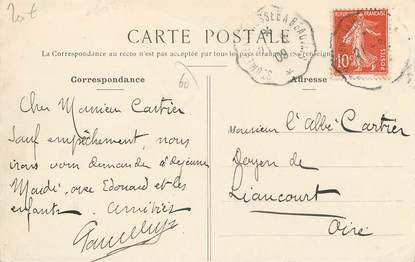 CARTE POSTALE
La Correspondance au recto n'est pas acceptée par tous les pays étrangers
Correspondance
Adresse
60
RÉPUBLIQUE FRANÇAISE
10c
POSTES
09
Cher Monsieur Cartier
Sauf empêchement, nous
irons vous demander à déjeuner
Mardi, avec Edouard et les
enfants. Amitiés
Monsieur l'abbé Cartier
Doyen de
Liancourt
Oise